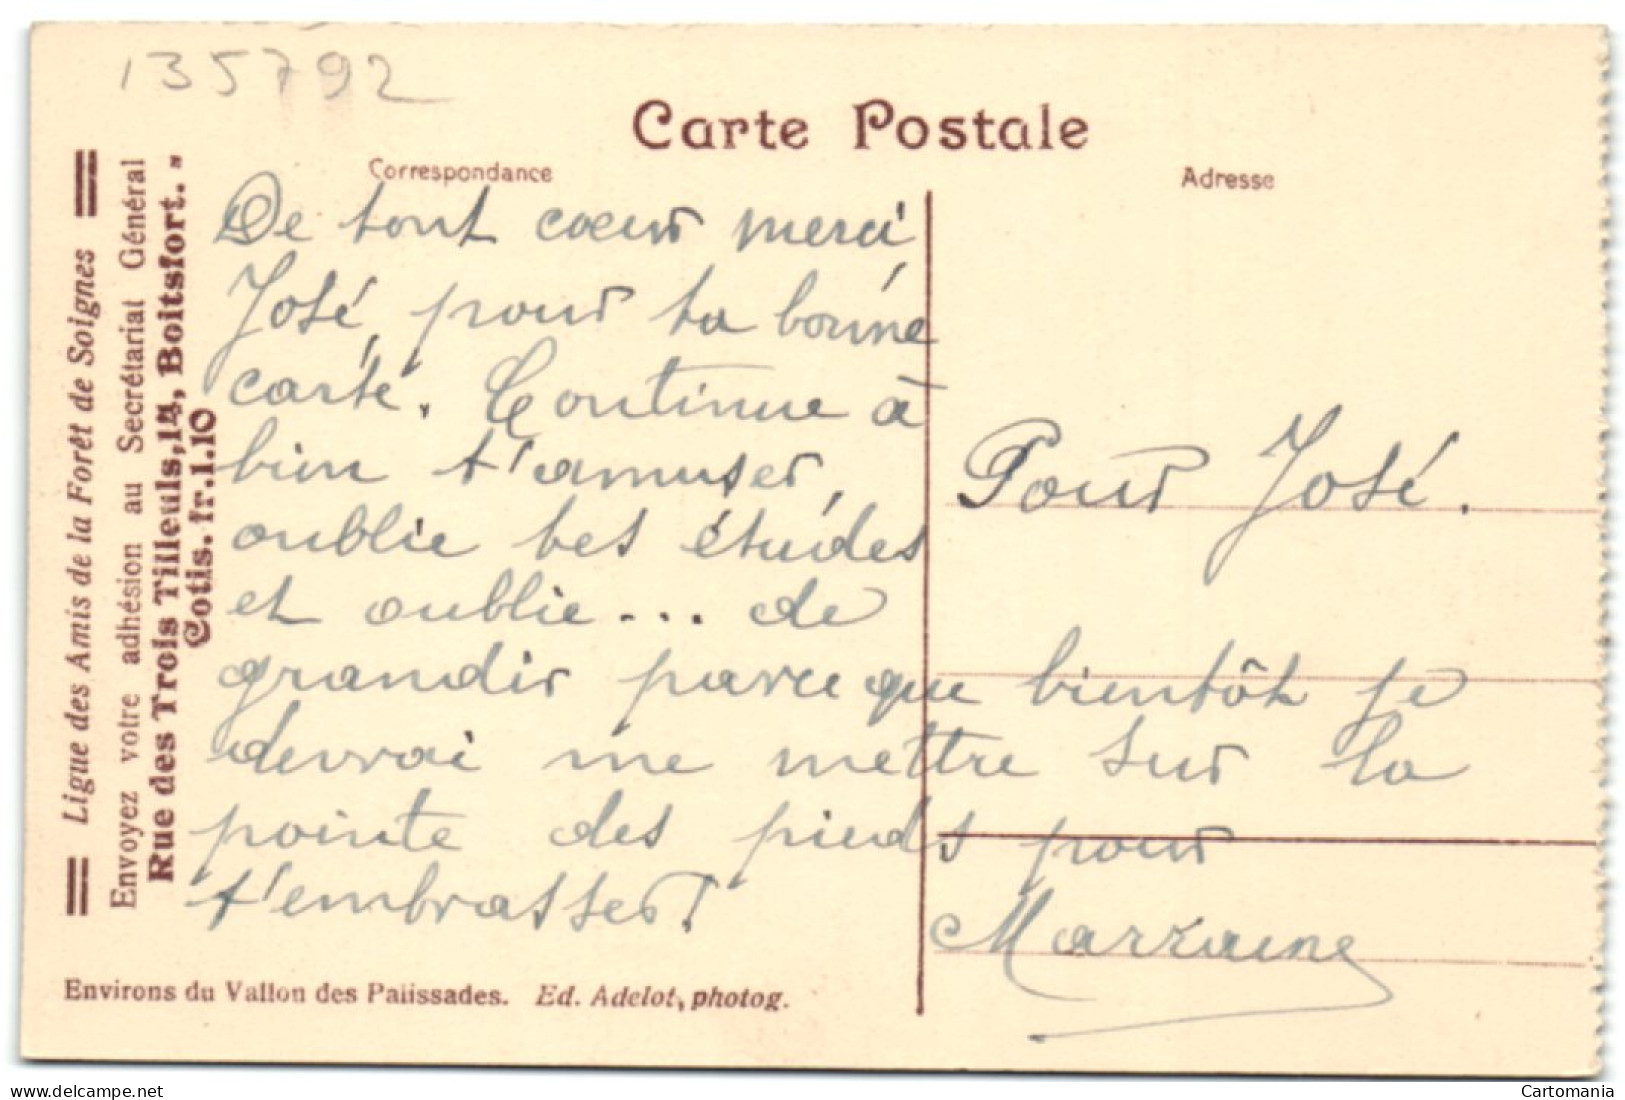 135792
Carte Postale
Correspondance
Adresse
Ligue des Amis de la Forêt de Soignes
Envoyez votre adhésion au Secrétariat Général
Rue des Trois Tilleuls, 14, Boitsfort. »
Cotis. fr. 1.10
De tout coeur merci
José, pour ta bonne
carte. Continue à
bien t'amuser,
oublie tes études
et oublie... de
grandir parce que bientôt je
devrai me mettre sur la
pointe des pieds pour
t'embrasser!
Marraine
Pour José.
Environs du Vallon des Palissades. Ed. Adelot, photog.
delcampe.net
Cartomania